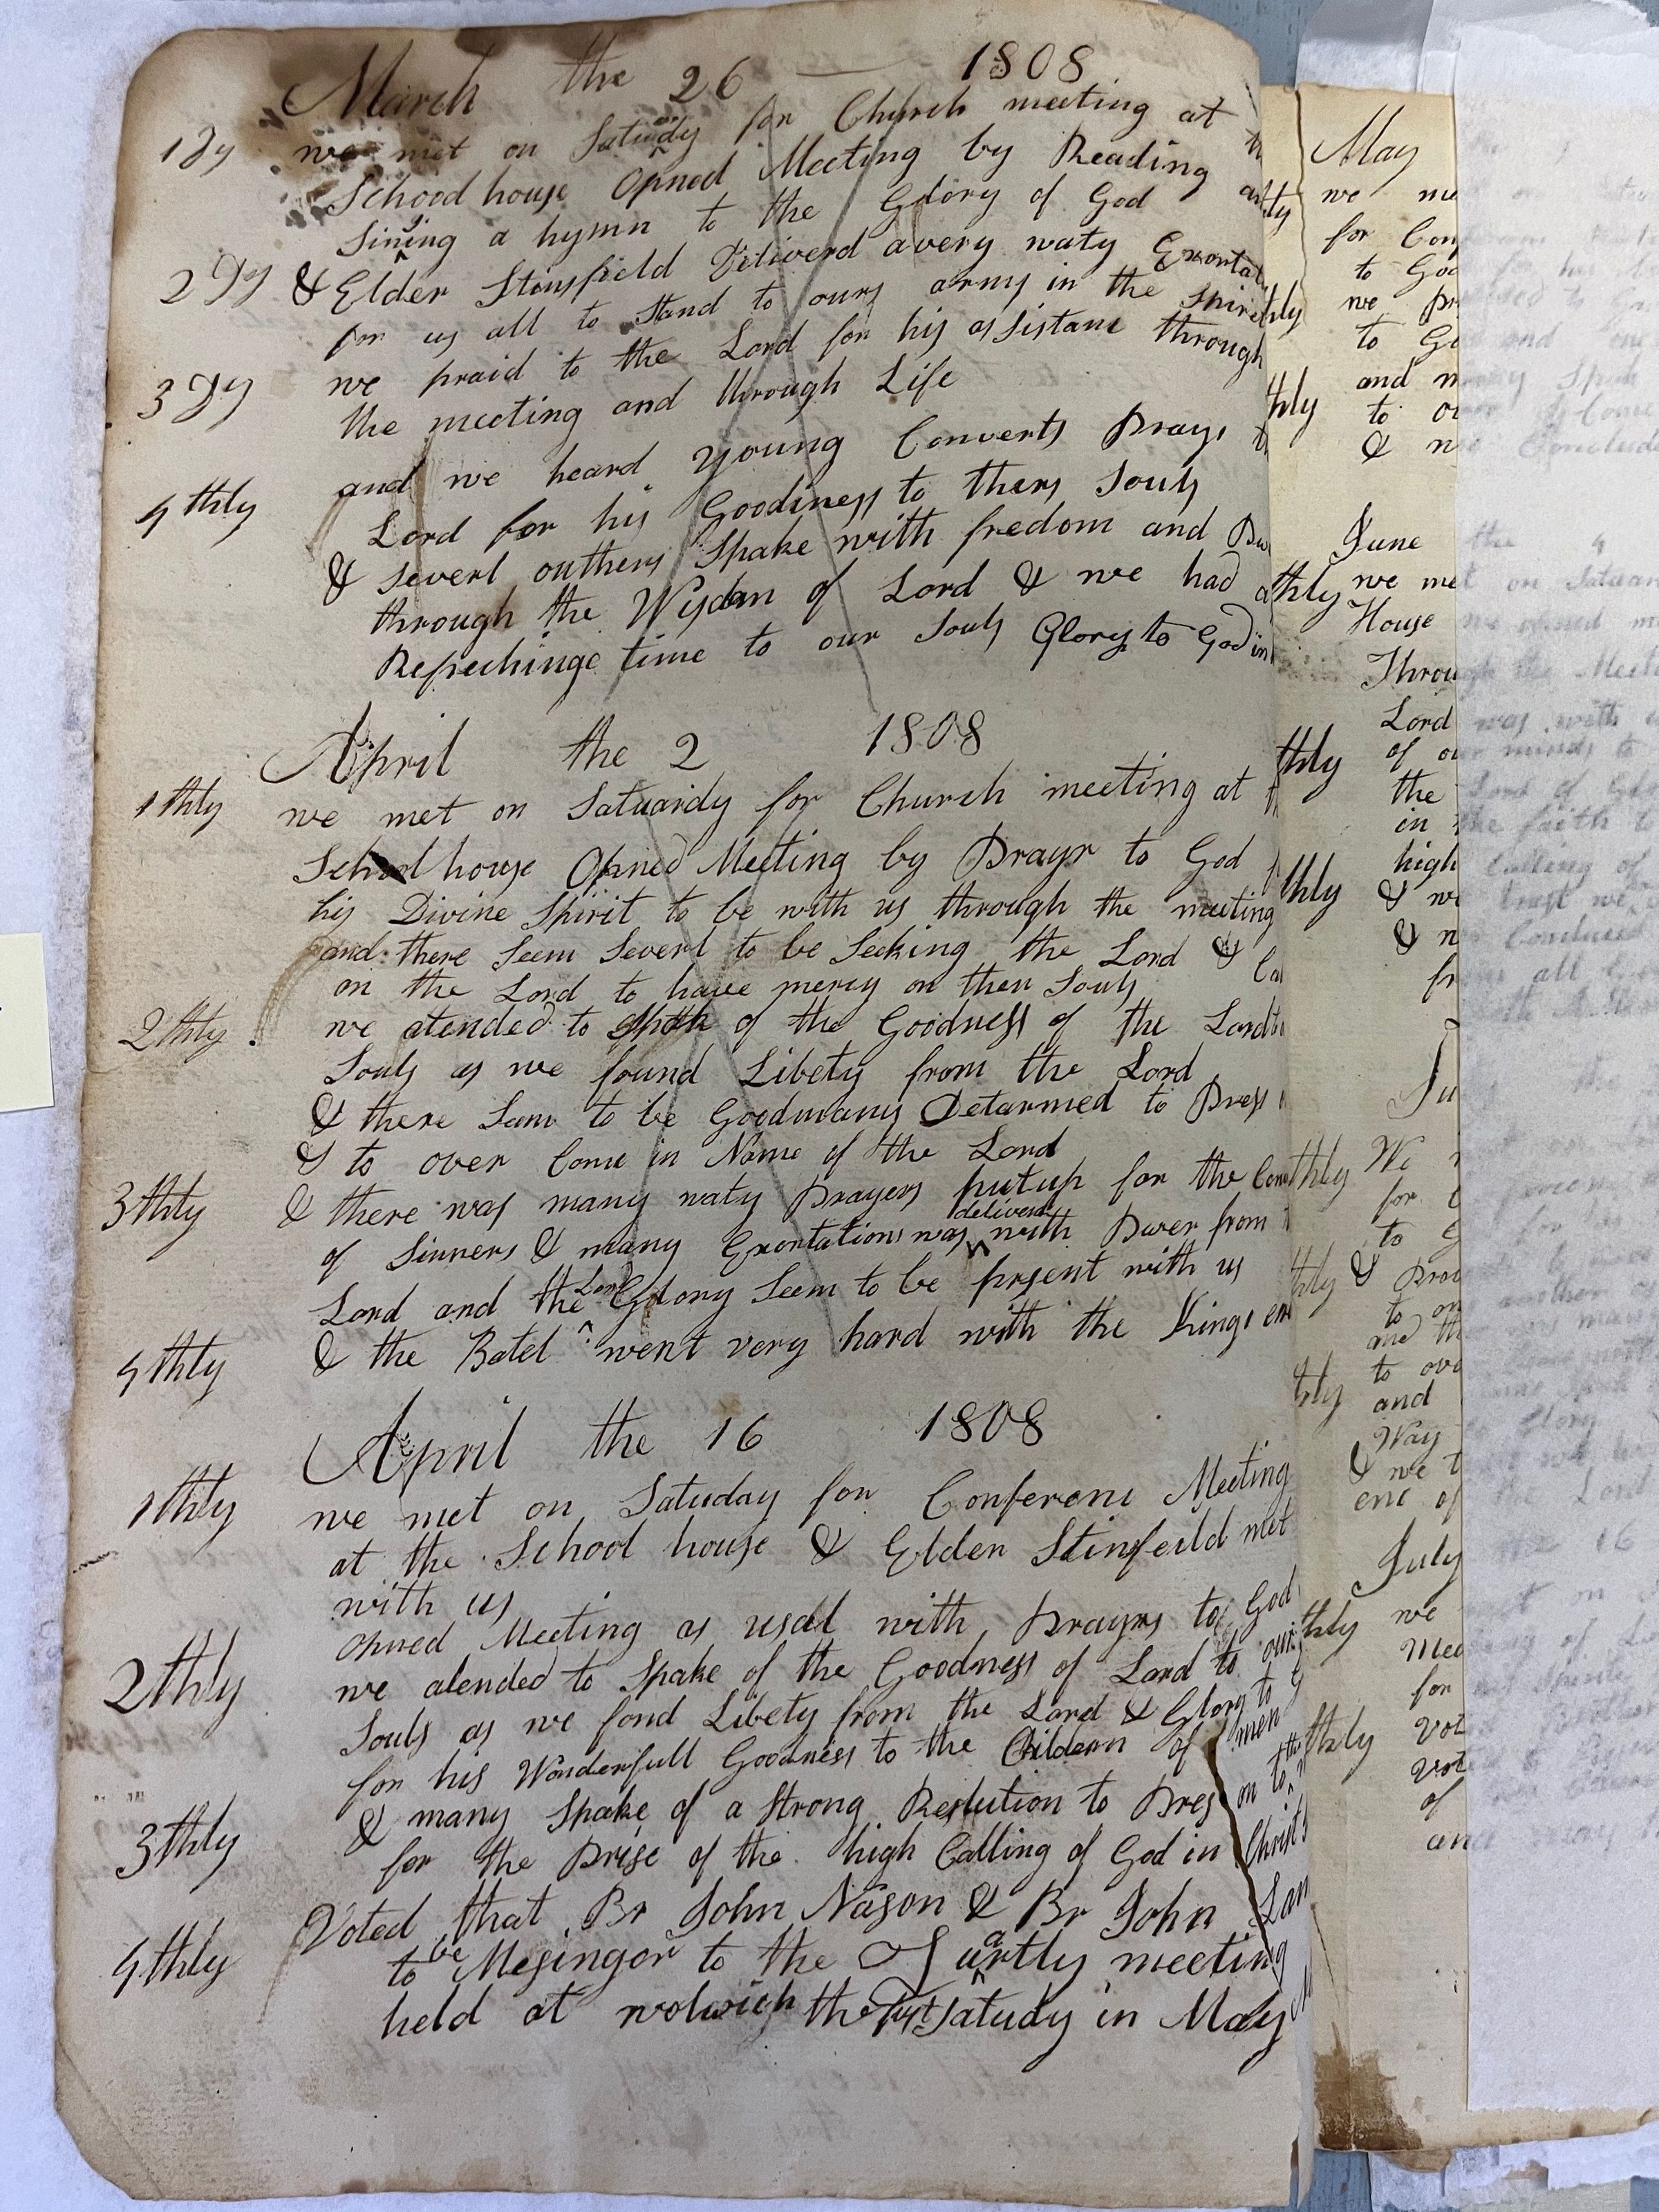 March the 26 — 1808
1 Dy we met on Satuerdy for Church meeting at th
School house Opned Meeting by Reading a
Sining a hymn to the Glory of God
2 Dy & Elder Stinsfield Diliverd avery waty Exorta
for us all to Stand to ours arms in the Spirit
3 Dy we praid to the Lord for his assistane through
the meeting and through Life
and we heard young Converts Prays t
4 thly Lord for his Goodiness to thers Souls
& severl outhers Spake with fredom and Pw
through the Wisdam of Lord & we had a
Refrechinge time to our Souls Glory to God in
April the 2 1808
1 thly we met on Satuardy for Church meeting at t
School house Opned Meeting by Prayr to God f
his Divine Spirit to be with us through the meeting
and there Seem Severl to be Seeking the Lord & Ca
on the Lord to have mercy on then Souls
2 thly we atended to Spak of the Goodness of the Lord to
Souls as we found Libety from the Lord
& there Sem to be Goodmany Detarmed to Press
& to over Come in Name of the Lord
3 thly & there was many waty Prayers put up for the Con
of Sinners & many Exortations was deliverd with Pwer from t
Lord and the Lord Glory Seem to be prsent with us
4 thly & the Batel went very hard with the Kings en
April the 16 1808
1 thly we met on Satuday for Conferene Meeting
at the School house & Elder Stinsfeild met
with us
opned Meeting as usal with Prayrs to God
2 thly we atended to Spake of the Goodness of Lord to our
Souls as we fond Libety from the Lord & Glory to G
for his Wonderfull Goodness to the Childern of men
3 thly & many Spake of a Strong Reslution to Press on to the
for the Prise of the high Calling of God in Christ
Voted that Br John Nason & Br John Lan
4 thly to be Mesingor to the Quartly meeting
held at wolwich the furst Satudy in May
May
we me
for Con
to God
we pr
to Go
and m
to ou
& n
June
we met
House
Throu
Lord
of ou
the
in
high
& we
& n
fr
Ju
We
for
to G
& Prai
to on
and th
to ove
and
Way
& we t
ene of
July
we
Mee
for
Vot
Vot
of
an